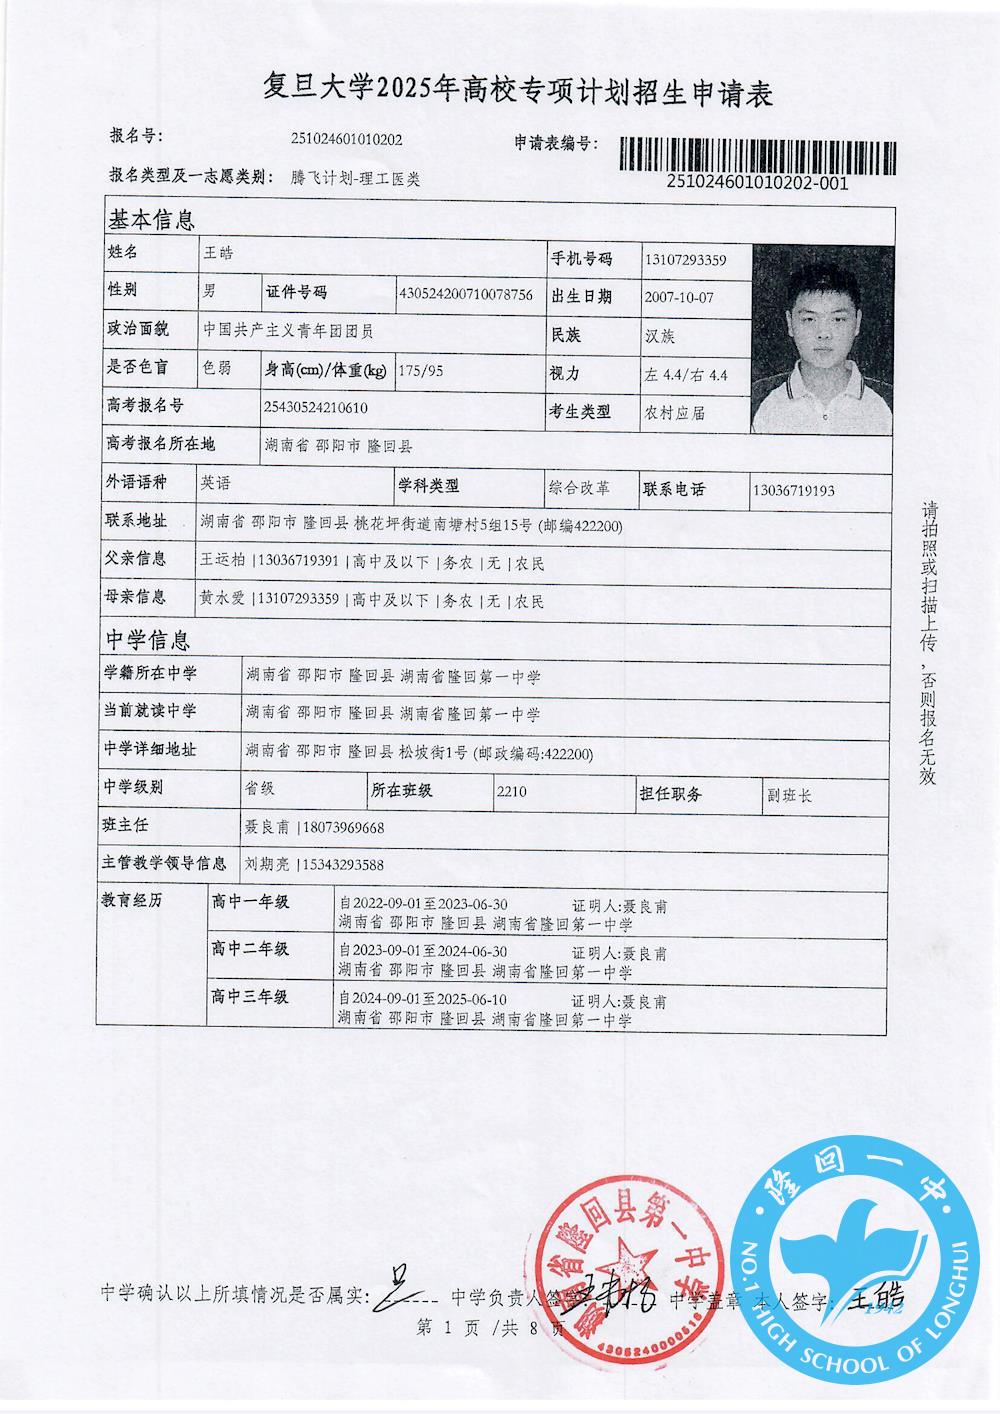 复旦大学2025年高校专项计划招生申请表
报名号： 251024601010202 申请表编号：
251024601010202-001
报名类型及一志愿类别： 腾飞计划-理工医类
基本信息
姓名 王皓 手机号码 13107293359
性别 男 证件号码 430524200710078756 出生日期 2007-10-07
政治面貌 中国共产主义青年团团员 民族 汉族
是否色盲 色弱 身高(cm)/体重(kg) 175/95 视力 左 4.4/右 4.4
高考报名号 25430524210610 考生类型 农村应届
高考报名所在地 湖南省 邵阳市 隆回县
外语语种 英语 学科类型 综合改革 联系电话 13036719193
联系地址 湖南省 邵阳市 隆回县 桃花坪街道南塘村5组15号 (邮编422200)
父亲信息 王运柏 |13036719391 |高中及以下 |务农 |无 |农民
母亲信息 黄水爱 |13107293359 |高中及以下 |务农 |无 |农民
中学信息
学籍所在中学 湖南省 邵阳市 隆回县 湖南省隆回第一中学
当前就读中学 湖南省 邵阳市 隆回县 湖南省隆回第一中学
中学详细地址 湖南省 邵阳市 隆回县 松坡街1号 (邮政编码:422200)
中学级别 省级 所在班级 2210 担任职务 副班长
班主任 聂良甫 |18073969668
主管教学领导信息 刘期亮 |15343293588
教育经历 高中一年级 自2022-09-01至2023-06-30 证明人:聂良甫
湖南省 邵阳市 隆回县 湖南省隆回第一中学
高中二年级 自2023-09-01至2024-06-30 证明人:聂良甫
湖南省 邵阳市 隆回县 湖南省隆回第一中学
高中三年级 自2024-09-01至2025-06-10 证明人:聂良甫
湖南省 邵阳市 隆回县 湖南省隆回第一中学
请拍照或扫描上传，否则报名无效
中学确认以上所填情况是否属实: 是 中学负责人签 中学盖章 本人签字: 王皓
第 1 页 /共 8 页
湖南省隆回县第一中学
4305240000516
隆回一中
1942
NO.1 HIGH SCHOOL OF LONGHUI